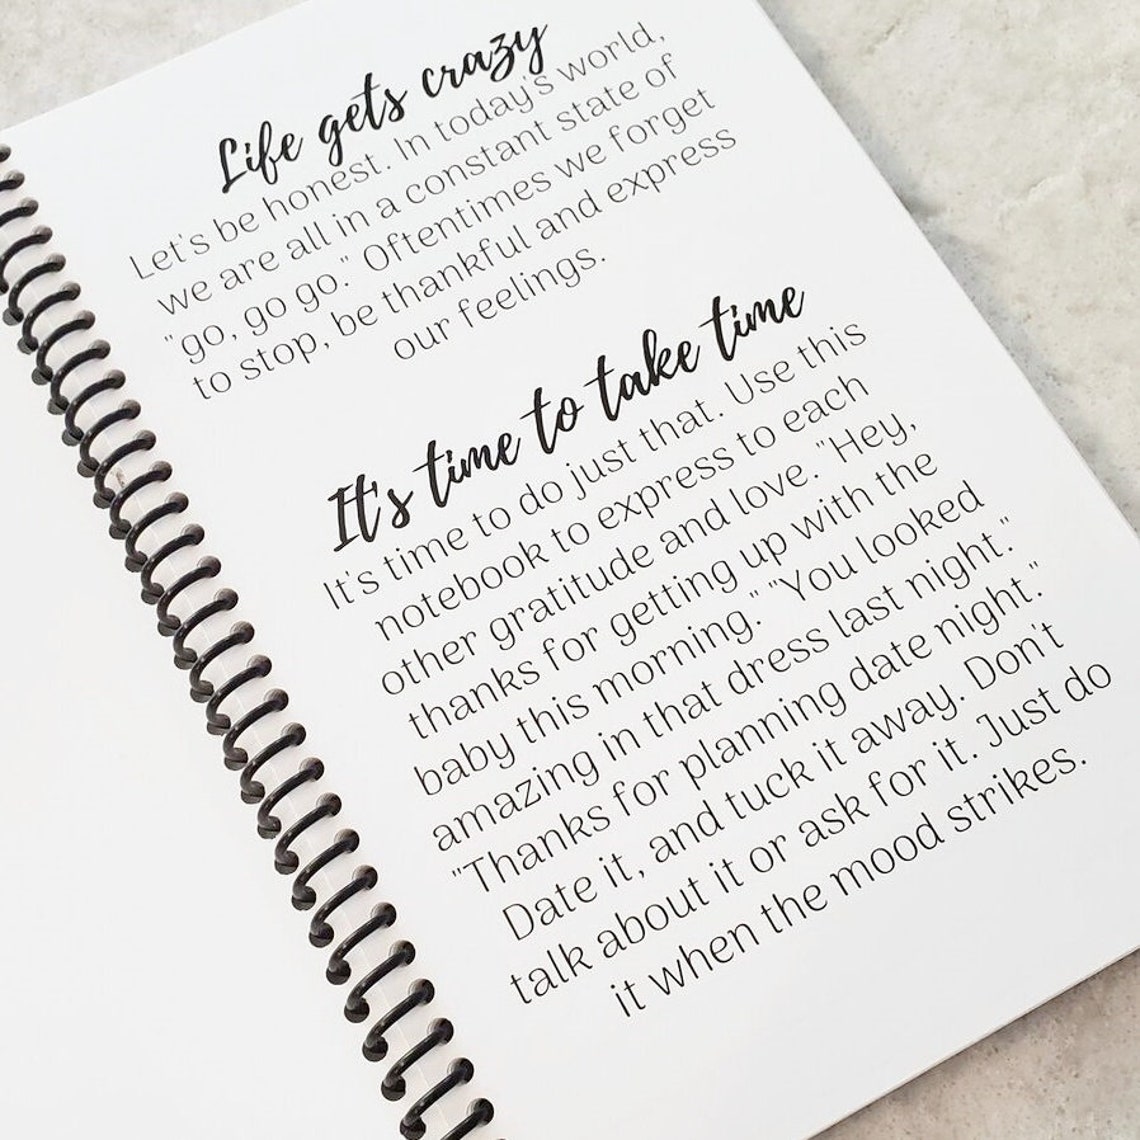 Life gets crazy
Let's be honest. In today's world,
we are all in a constant state of
"go, go go." Oftentimes we forget
to stop, be thankful and express
our feelings.
It's time to take time
It's time to do just that. Use this
notebook to express to each
other gratitude and love. "Hey,
thanks for getting up with the
baby this morning." "You looked
amazing in that dress last night."
"Thanks for planning date night."
Date it, and tuck it away. Don't
talk about it or ask for it. Just do
it when the mood strikes.